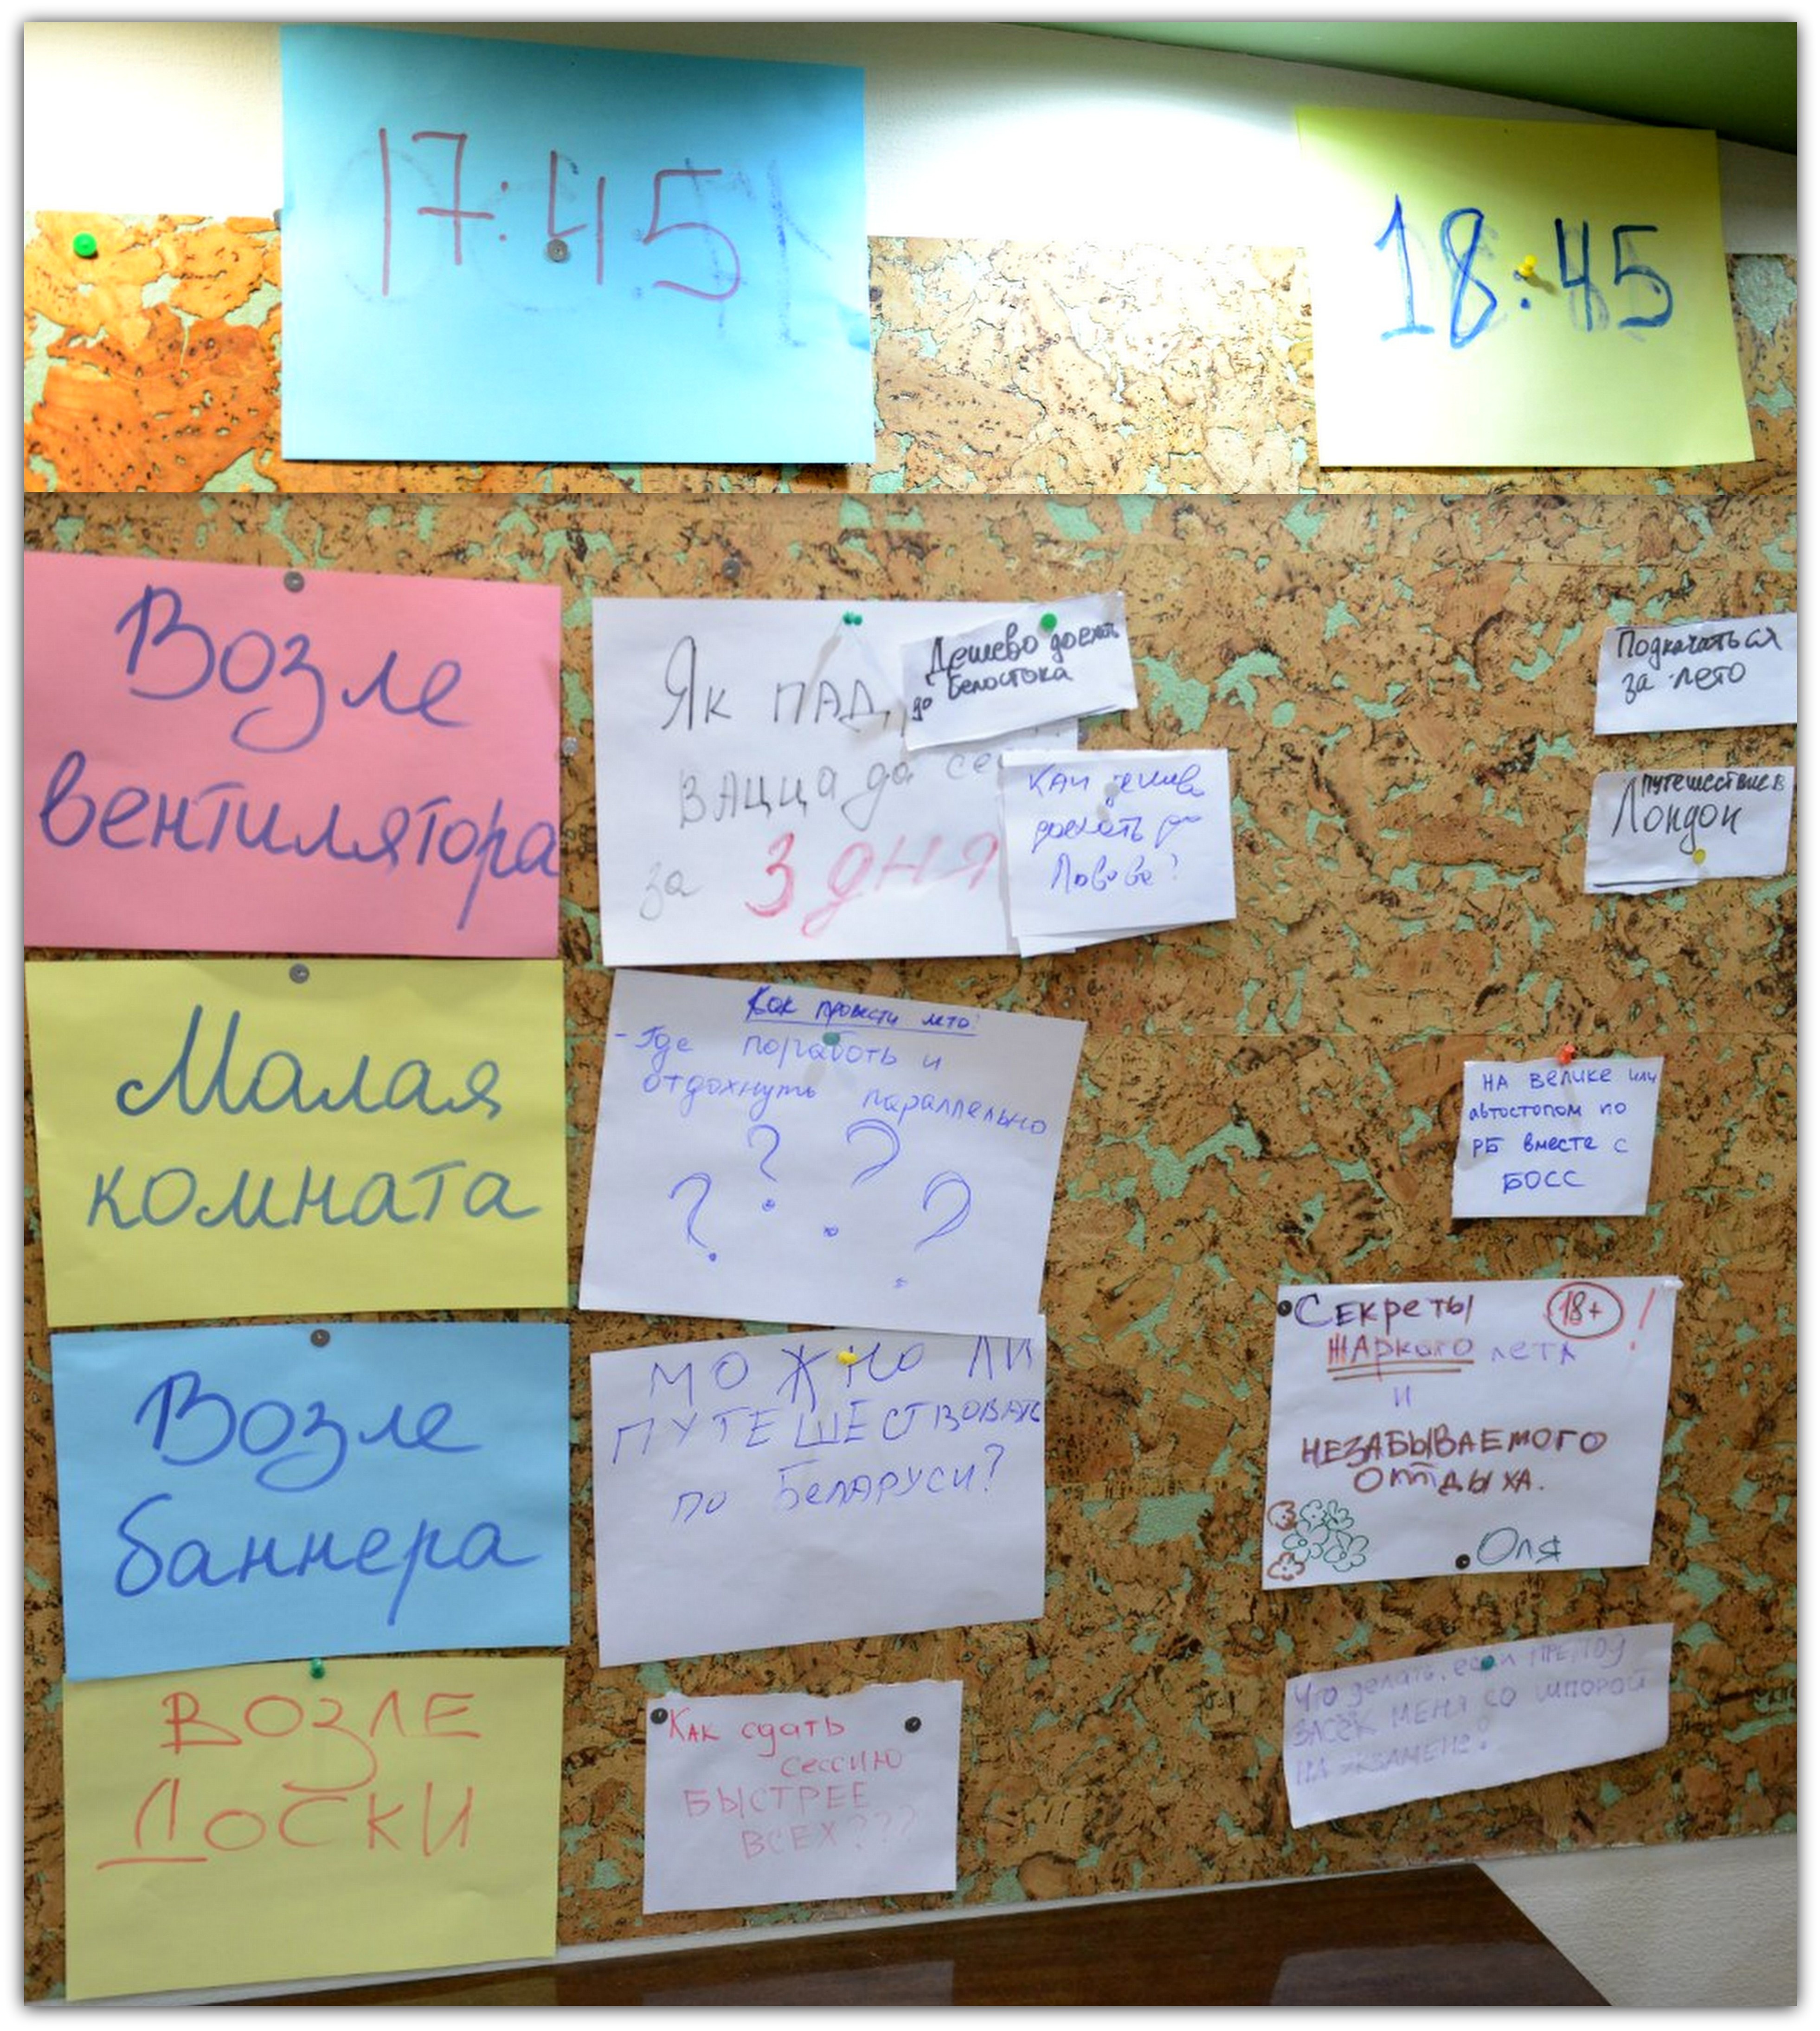 17:45
18:45
Возле
вентилятора
Як ПАД
ВАЦЦА да се
за 3 дня
Дешево доехать
до Белостока
Как
доехать до
Львова?
Подкачаться
за лето
путешествие в
Лондон
Малая
комната
Как провести лето?
- Где поработь и
отдохнуть параллельно
? ? ? ?
НА велике или
автостопом по
РБ вместе с
БОСС
Возле
баннера
МОЖНО ЛИ
ПУТЕШЕСТВОВАТЬ
ПО БЕЛАРУСИ?
Секреты 18+ !
ЖАркого летА
и
НЕЗАБЫВАЕМОГО
ОТДЫХА.
Оля
ВОЗЛЕ
ДОСКИ
Как сдать
сессию
БЫСТРЕЕ
ВСЕХ???
Что делать, если ПРЕПОД
ЗАСЁК МЕНЯ СО ШПОРОЙ
НА ЭКЗАМЕНЕ?